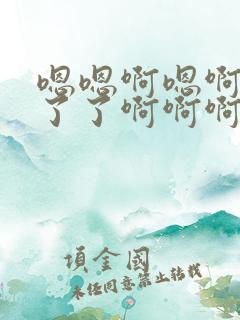 嗯嗯啊嗯啊
了了啊啊啊
項金國
未经同意禁止转载